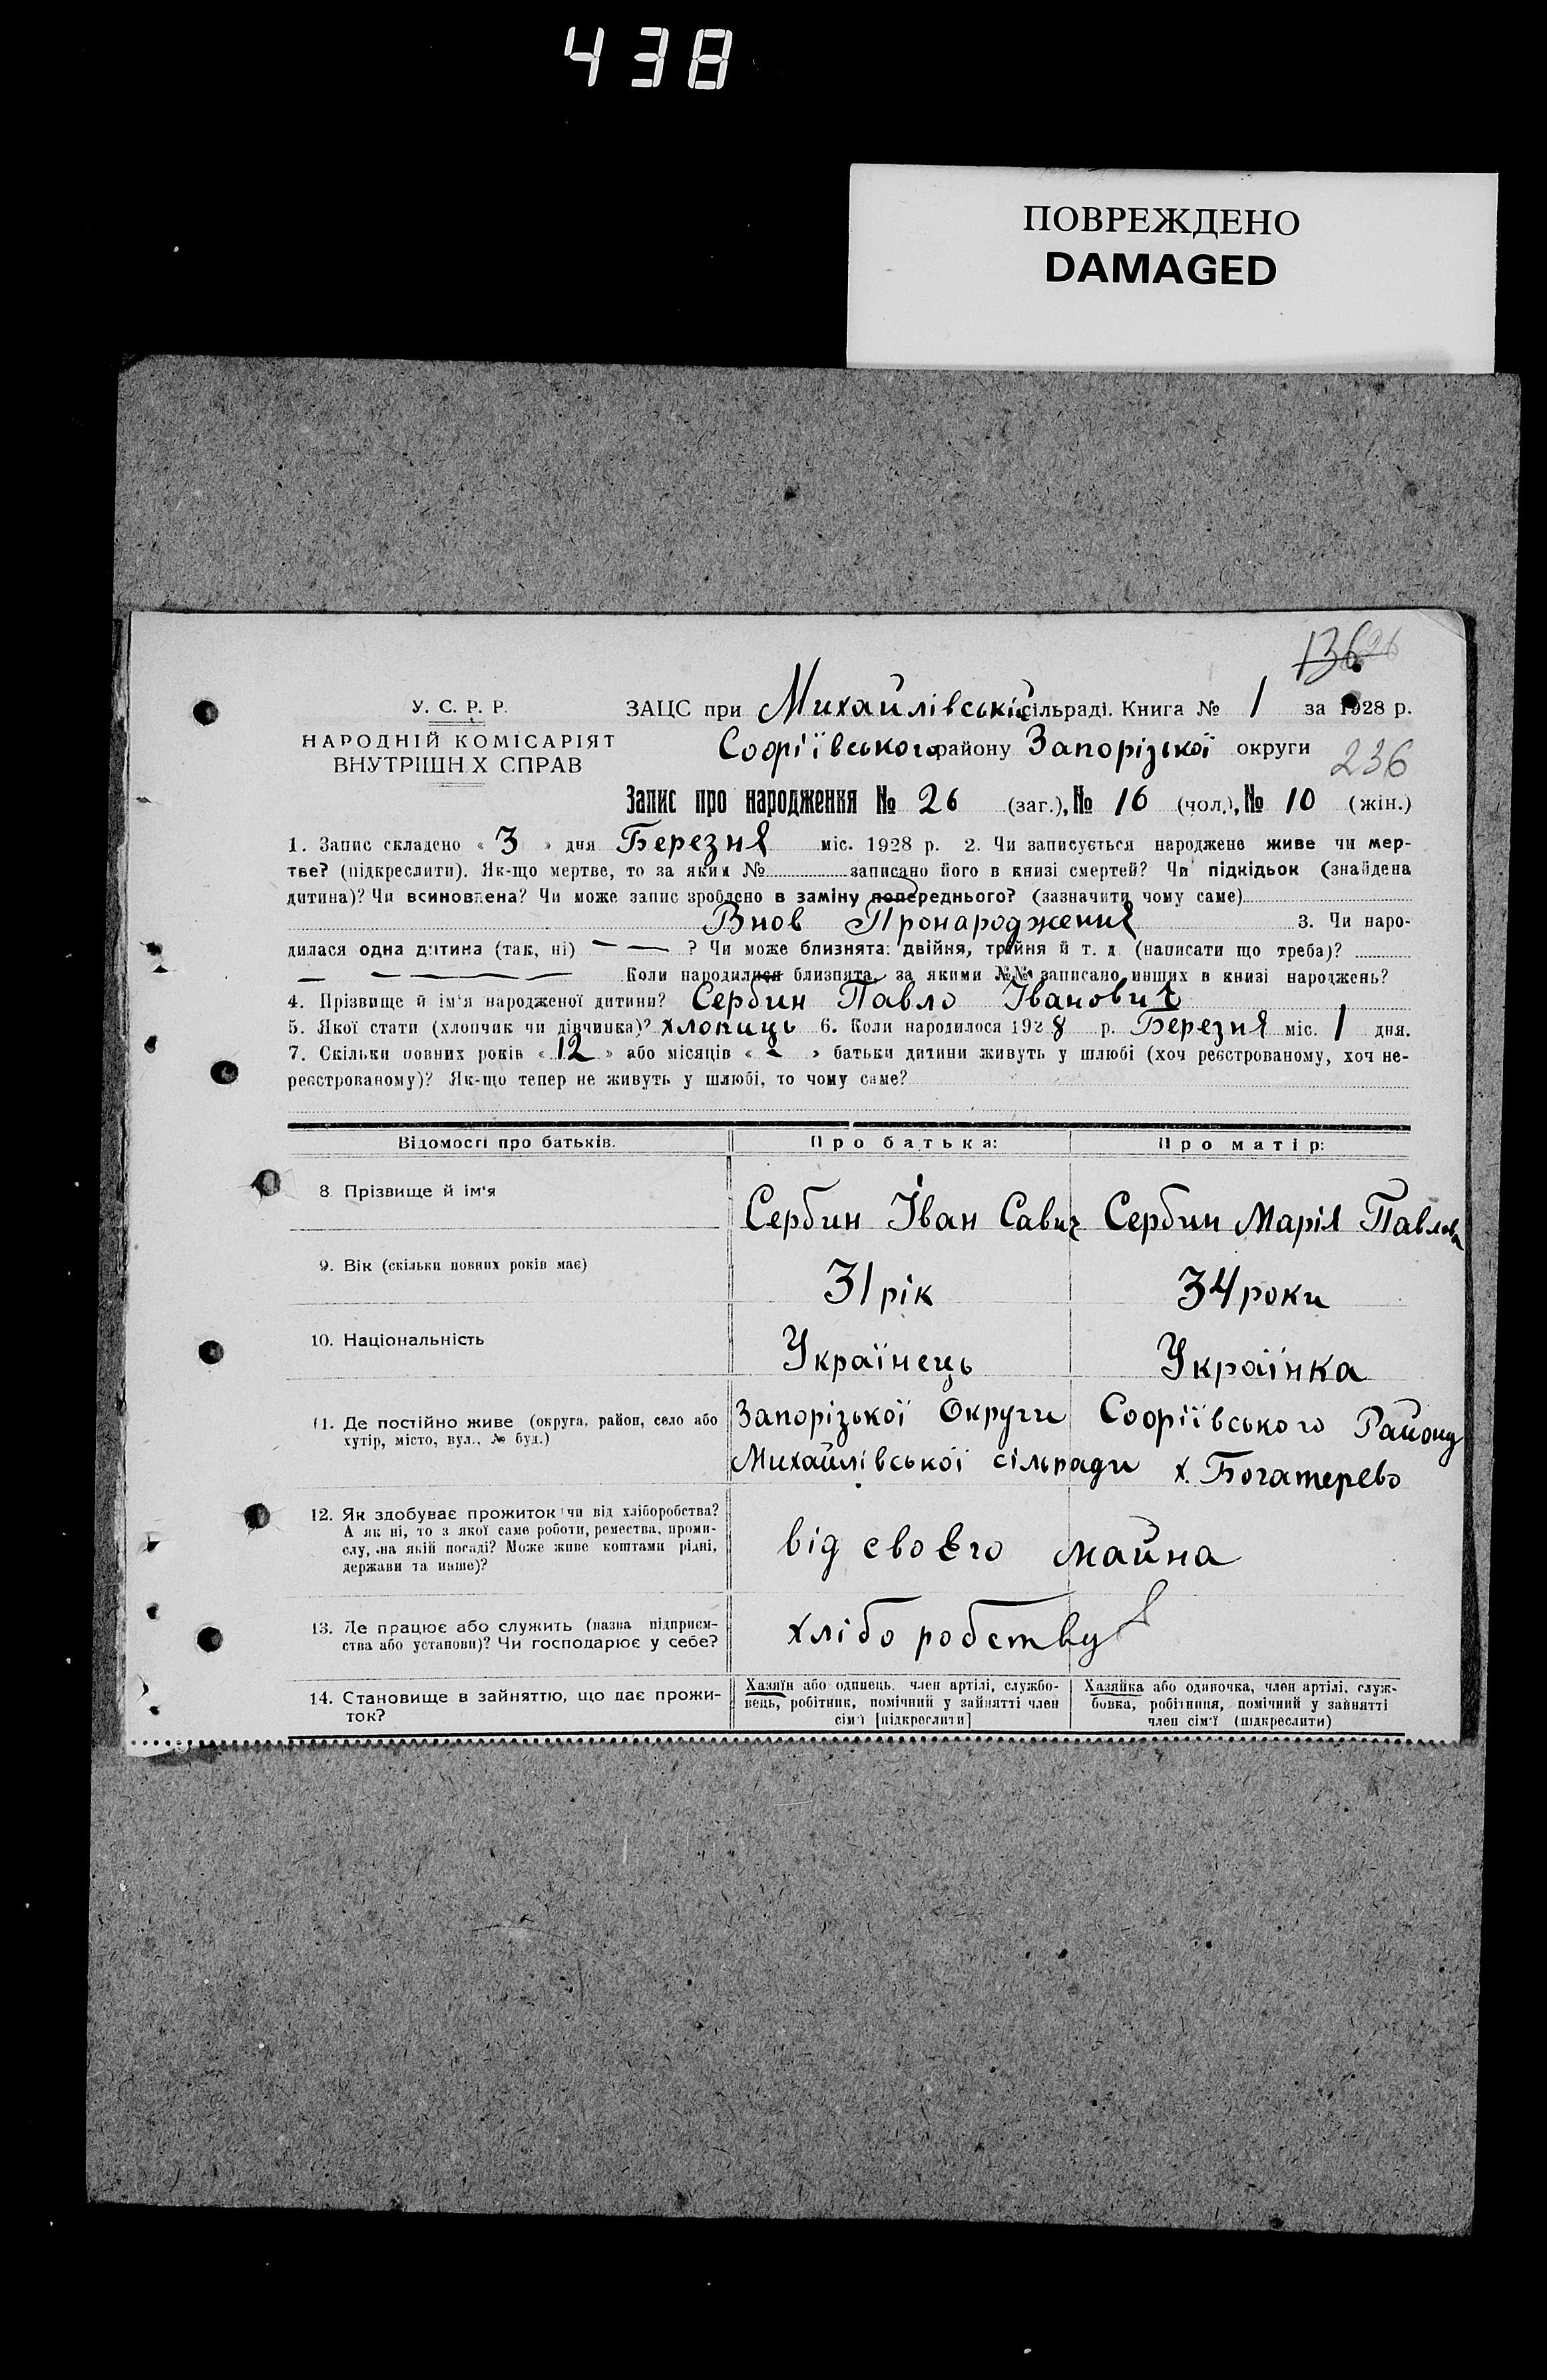 438
ПОВРЕЖДЕНО
DAMAGED
136 26
У. С. Р. Р.
НАРОДНІЙ КОМІСАРІЯТ
ВНУТРІШН Х СПРАВ
ЗАЦС при Михайлівській сільраді. Книга № 1 за 1928 р.
Софіївського району Запорізької округи
236
Запис про народження № 26 (заг.), № 16 (чол.), № 10 (жін.)
1. Запис складено « 3 » дня Березня міс. 1928 р. 2. Чи записується народжене живе чи мер-
тве? (підкреслити). Як-що мертве, то за яким № записано його в книзі смертей? Чи підкідьок (знайдена
дитина)? Чи всиновлена? Чи може запис зроблено в заміну попереднього? (зазначити чому саме)
Внов Пронароджения 3. Чи наро-
дилася одна дитина (так, ні) — — ? Чи може близнята: двійня, трійня й т. д. (написати що треба)?
— — Коли народилися близнята, за якими №№ записано инших в книзі народжень?
4. Прізвище й ім'я народженої дитини? Сербин Павло Іванович
5. Якої стати (хлопчик чи дівчинка)? хлопиць 6. Коли народилося 1928 р. Березня міс. 1 дня.
7. Скільки повних років « 12 » або місяців « - » батьки дитини живуть у шлюбі (хоч реєстрованому, хоч не-
реєстрованому)? Як-що тепер не живуть у шлюбі, то чому саме?
Відомості про батьків. Про батька: Про матір:
8 Прізвище й ім'я Сербин Іван Савич Сербин Марія Павлова
9. Вік (скільки повних років має) 31 рік 34 роки
10. Національність Українець Українка
11. Де постійно живе (округа, район, село або
хутір, місто, вул., № буд.)
Запорізької Округи Софіївського Району
Михайлівської сільради х. Богатерево
12. Як здобуває прожиток чи від хліборобства?
А як ні, то з якої саме роботи, ремества, проми-
слу, на якій посаді? Може живе коштами рідні,
держави та инше)?
від своєго майна
13. Де працює або служить (назва підприєм-
ства або установи)? Чи господарює у себе?
хлібо робству
14. Становище в зайняттю, що дає прожи-
ток?
Хазяїн або одинець, член артілі, службо-
вець, робітник, помічний у зайнятті член
сім'ї [підкреслити]
Хазяйка або одиночка, член артілі, служ-
бовка, робітниця, помічний у зайнятті
член сім'ї (підкреслити)